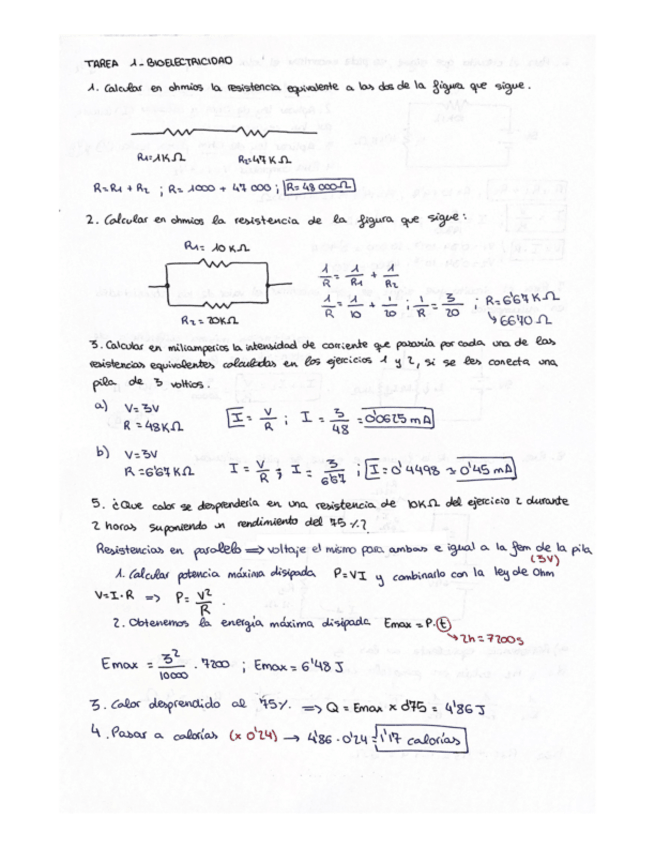 TAREA 1 - BIOELECTRICIDAD
1. Calcular en ohmios la resistencia equivalente a las dos de la figura que sigue.
R1=1KΩ R2=47KΩ
R=R1+R2 ; R=1000 + 47 000 ; R=48 000Ω
2. Calcular en ohmios la resistencia de la figura que sigue:
R1= 10KΩ
R2 = 20KΩ
1/R = 1/R1 + 1/R2
1/R = 1/10 + 1/20 ; 1/R = 3/20 ; R=6'67KΩ
↳ 6670 Ω
3. Calcular en miliamperios la intensidad de corriente que pasaría por cada una de las
resistencias equivalentes calculadas en los ejercicios 1 y 2, si se les conecta una
pila de 3 voltios.
a) V=3V
R=48KΩ
I = V/R ; I = 3/48 = 0'0625 mA
b) V=3V
R=6'67KΩ
I = V/R ; I = 3/6'67 ; I=0'4498 ≃ 0'45 mA
5. ¿Que calor se desprendería en una resistencia de 10KΩ del ejercicio 2 durante
2 horas suponiendo un rendimiento del 75%?
Resistencias en paralelo ⇒ voltaje el mismo para ambas e igual a la fem de la pila
(3V)
1. Calcular potencia máxima disipada P=VI y combinarlo con la ley de Ohm
V=I·R ⇒ P= V²/R.
2. Obtenemos la energía máxima disipada Emax = P·t
↳ 2h=7200s
Emax = 3²/10000 · 7200 ; Emax = 6'48 J
3. Calor desprendido al 75% ⇒ Q = Emax x 0'75 = 4'86 J
4. Pasar a calorías (x 0'24) → 4'86 · 0'24 = 1'17 calorías